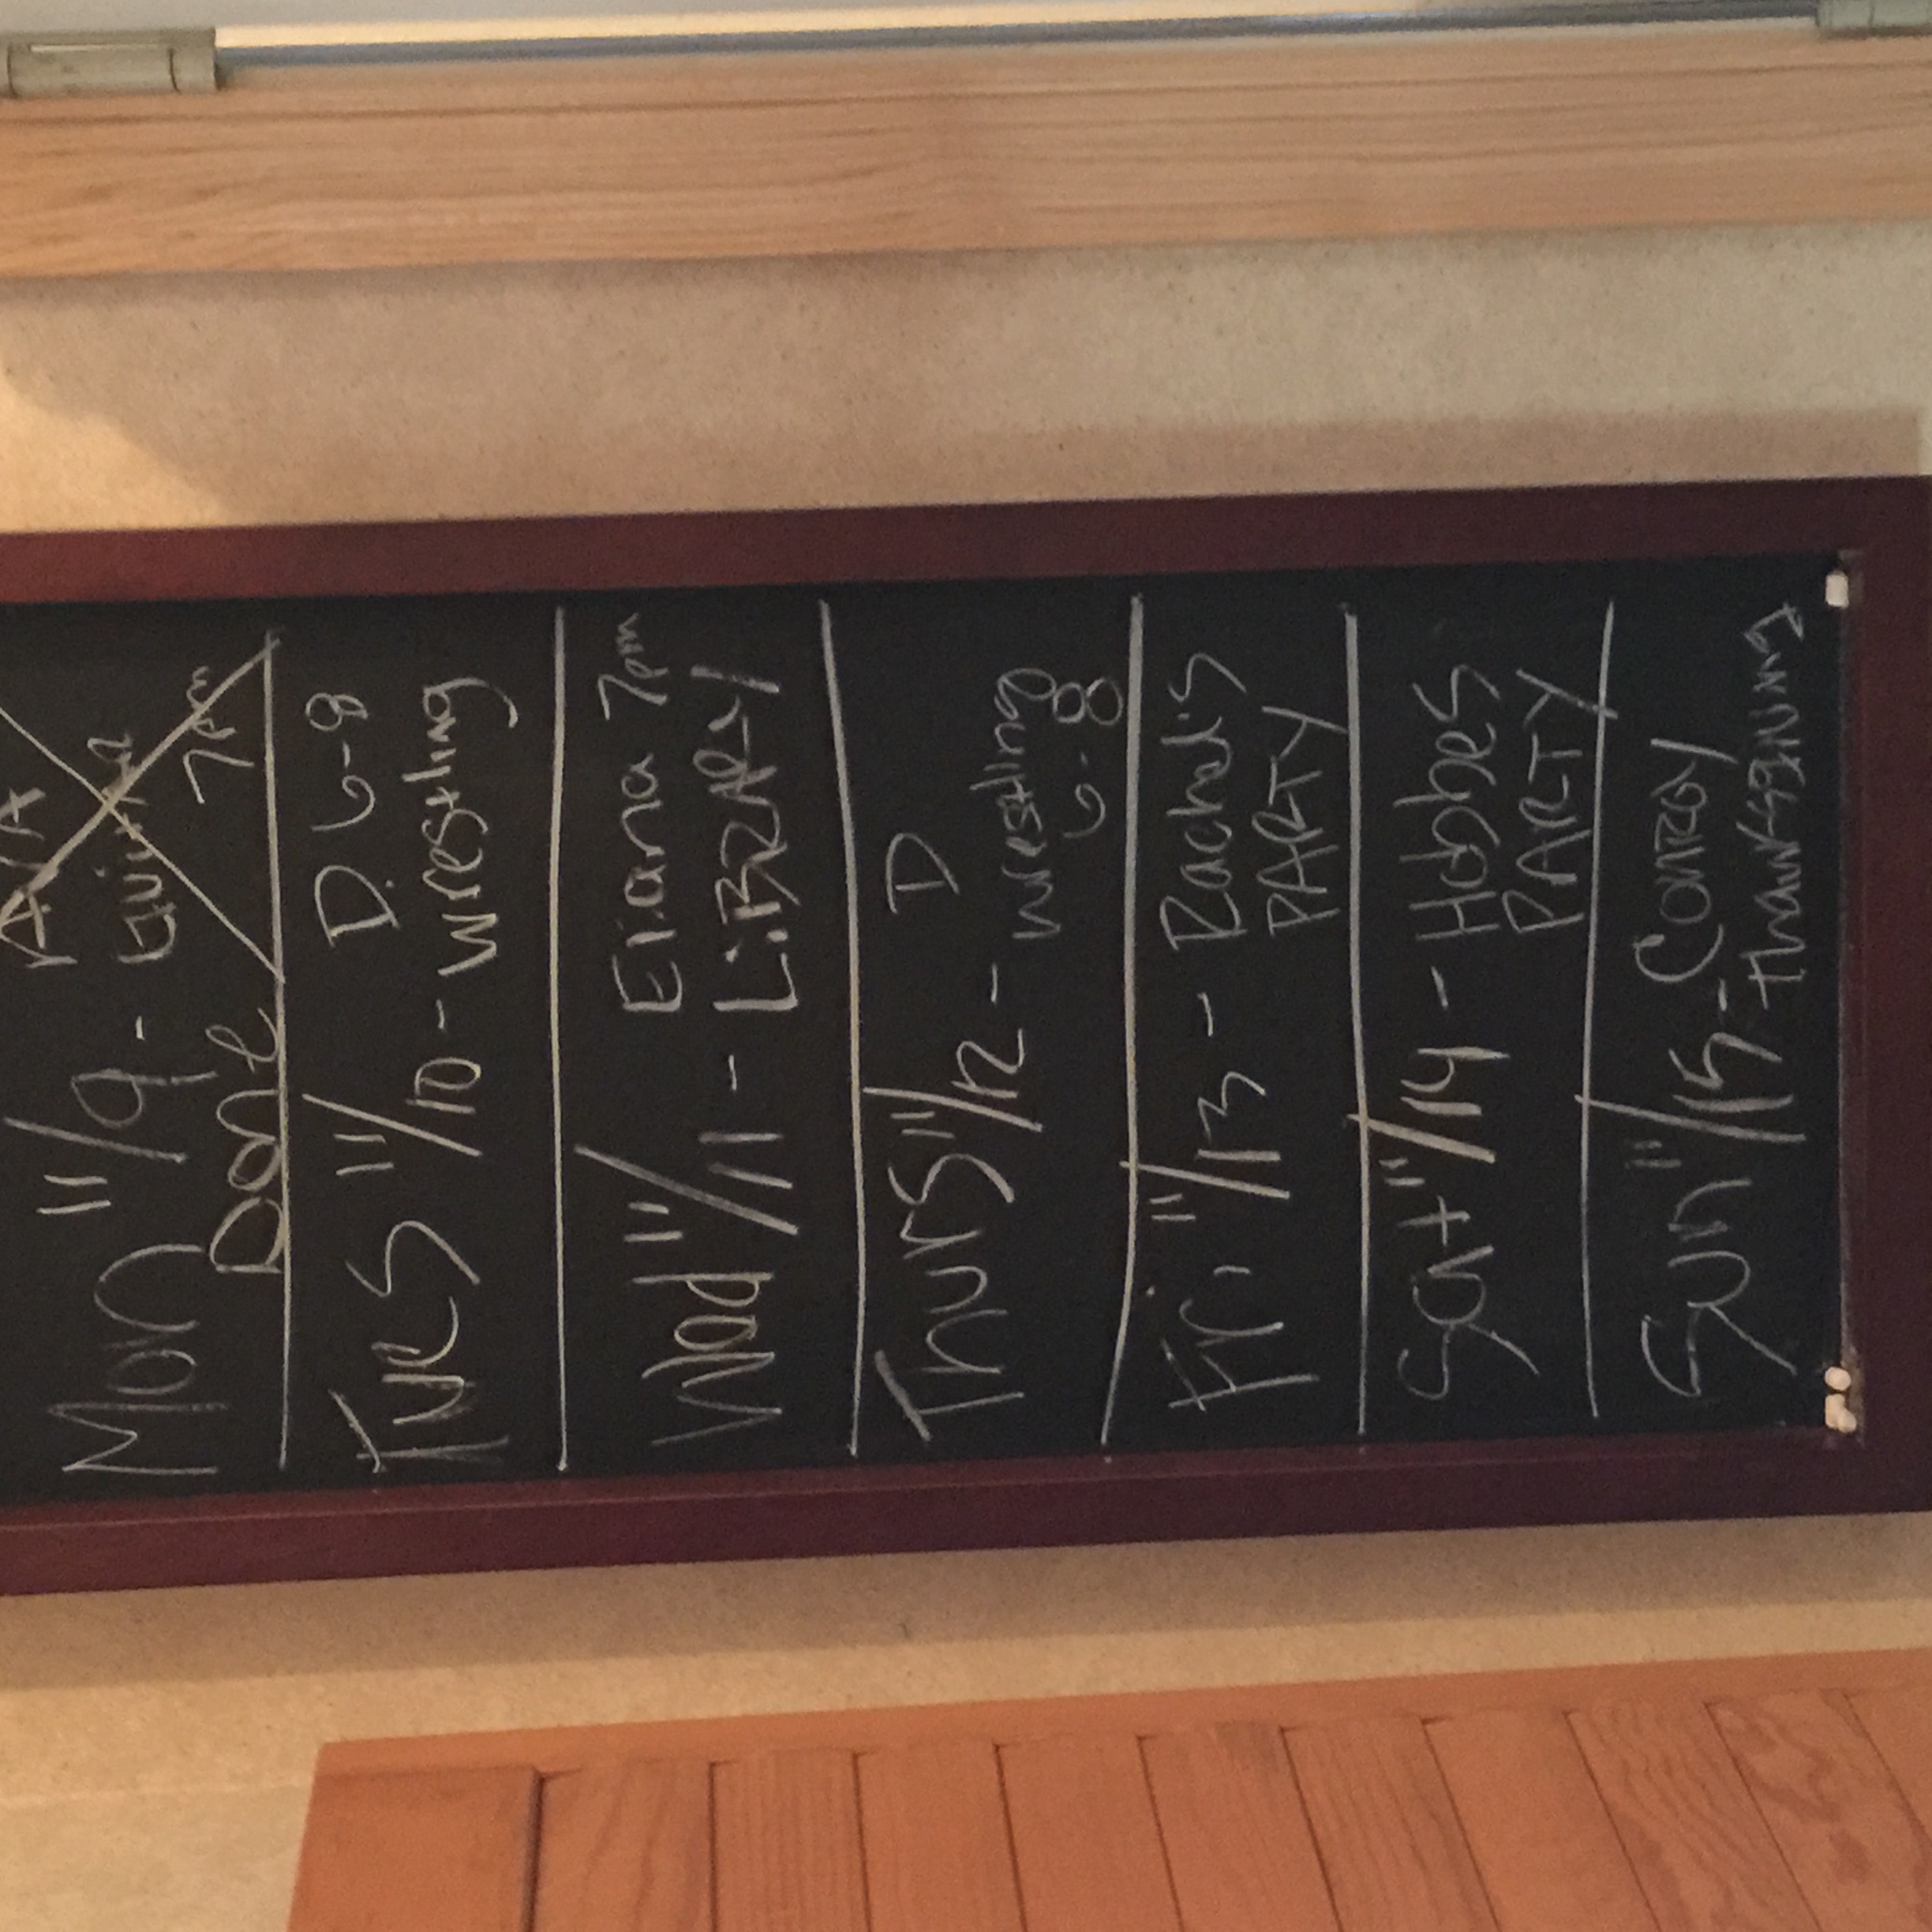 Mon 11/9 - AVA
Guitar
7pm
Done
Tues 11/10 - D. 6-8
wrestling
Wed 11/11 - Eiana 7pm
LiBRARY
Thurs 11/12 - D
wrestling
6-8
Fri 11/13 - Rachel's
PARTY
Sat 11/14 - Hobbes
PARTY
Sun 11/15 - Conroy
Thanksgiving